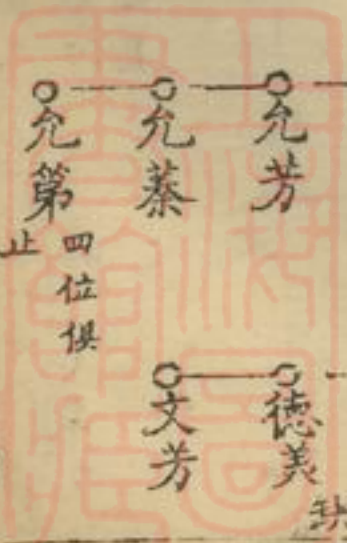 允芳
允蓁
允第
四位俱
止
德美
缺
文芳